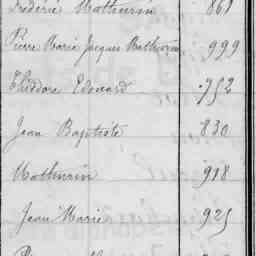 Frédéric Mathurin 861
Pierre Marie Jacques Mathurin 999
Théodore Edouard 752
Jean Baptiste 830
Mathurin 918
Jean Marie 925